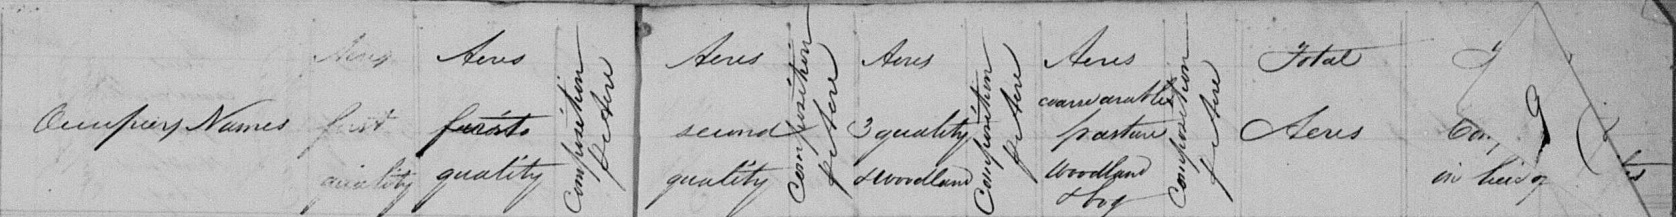 Occupiers Names
Acres
first
quality
Acres
first
quality
Composition
pr Acre
Acres
second
quality
Composition
pr Acre
Acres
3 quality
& Woodland
Composition
pr Acre
Acres
coarse arable
pasture
Woodland
& bog
Composition
pr Acre
Total
Acres
in lieu of